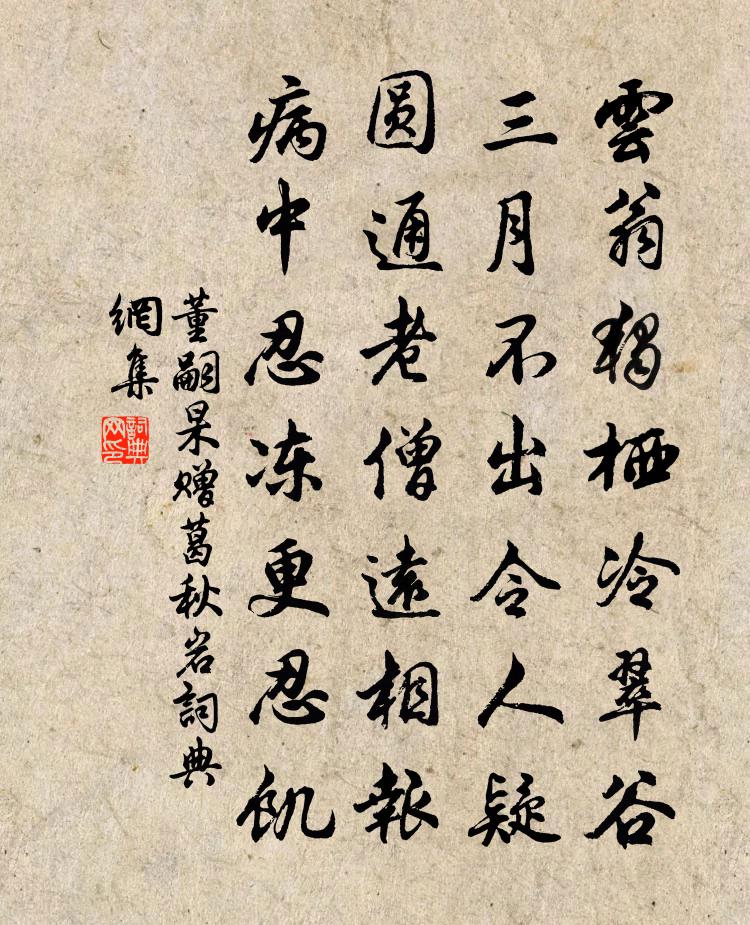 雲翁獨栖冷翠谷
三月不出令人疑
圓通老僧遠相報
病中忍冻更忍飢
董嗣杲赠葛秋岩詞典
網集
詞典
网印